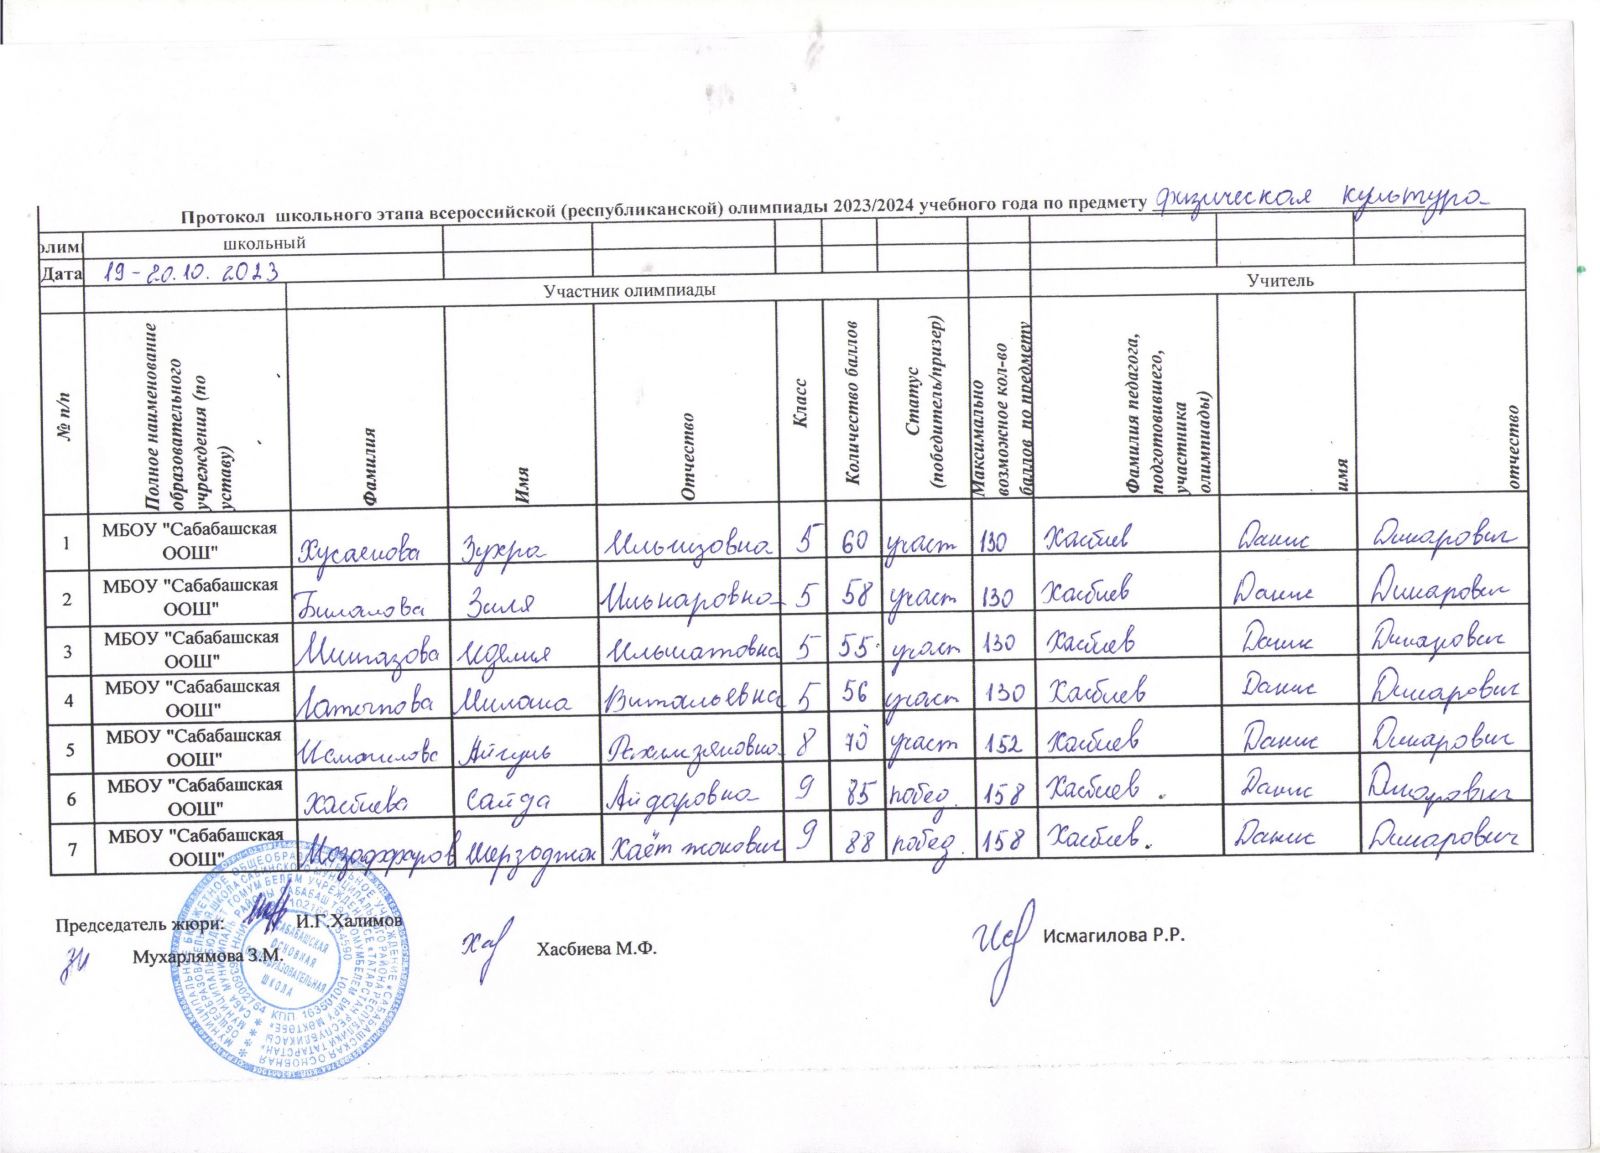 Протокол школьного этапа всероссийской (республиканской) олимпиады 2023/2024 учебного года по предмету физическая культура
олим школьный
Дата 19-20.10.2023
Участник олимпиады Учитель
№ п/п Полное наименование образовательного учреждения (по уставу) Фамилия Имя Отчество Класс Количество баллов Статус (победитель/призер) Максимально возможное кол-во баллов по предмету Фамилия педагога, подготовившего, участника олимпиады) имя отчество
1 МБОУ "Сабабашская ООШ" Хусаенова Зухра Ильгизовна 5 60 участ 130 Хасбиев Данис Динарович
2 МБОУ "Сабабашская ООШ" Билалова Зиля Ильнаровна 5 58 участ 130 Хасбиев Данис Динарович
3 МБОУ "Сабабашская ООШ" Иделия Ильшатовна 5 55 участ 130 Хасбиев Данис Динарович
4 МБОУ "Сабабашская ООШ" Латыпова Милана Витальевна 5 56 участ 130 Хасбиев Данис Динарович
5 МБОУ "Сабабашская ООШ" Айгуль 8 70 участ 152 Хасбиев Данис Динарович
6 МБОУ "Сабабашская ООШ" Хасбиева Саида Айдаровна 9 85 побед. 158 Хасбиев. Данис Динарович
7 МБОУ "Сабабашская ООШ" Мозаффаров Мерзоджон Хаётжонович 9 88 побед. 158 Хасбиев. Данис Динарович
Председатель жюри: И.Г.Халимов
Мухарлямова З.М. Хасбиева М.Ф. Исмагилова Р.Р.
САБАБАШСКАЯ
ОСНОВНАЯ
ОБЩЕОБРАЗОВАТЕЛЬНАЯ
ШКОЛА